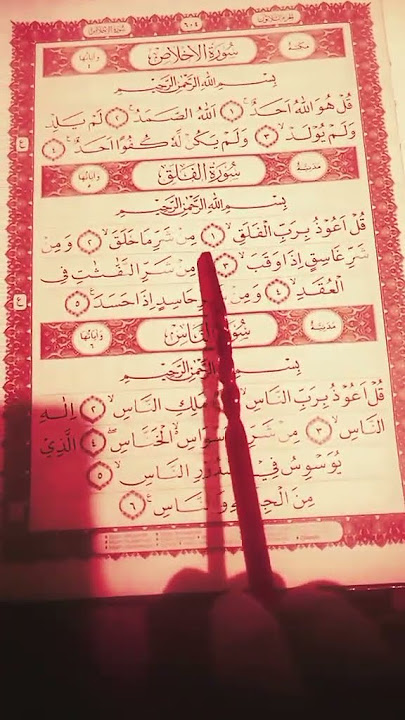 سُورَةُ الْاِخْلَاصِ
مَكِّيَّة
وَاٰيَاتُهَا ٤
٦٠٤
بِسْمِ اللّٰهِ الرَّحْمٰنِ الرَّحِيْمِ
قُلْ هُوَ اللّٰهُ اَحَدٌ ۚ ١ اَللّٰهُ الصَّمَدُ ۚ ٢ لَمْ يَلِدْ
وَلَمْ يُوْلَدْ ۙ ٣ وَلَمْ يَكُنْ لَّهٗ كُفُوًا اَحَدٌ ࣖ ٤
مَدَنِيَّة
سُورَةُ الْفَلَقِ
وَاٰيَاتُهَا ٥
بِسْمِ اللّٰهِ الرَّحْمٰنِ الرَّحِيْمِ
قُلْ اَعُوْذُ بِرَبِّ الْفَلَقِ ۙ ١ مِنْ شَرِّ مَا خَلَقَ ۙ ٢ وَمِنْ
شَرِّ غَاسِقٍ اِذَا وَقَبَ ۙ ٣ مِنْ شَرِّ النَّفّٰثٰتِ فِى
الْعُقَدِ ۙ ٤ وَمِنْ حَاسِدٍ اِذَا حَسَدَ ࣖ ٥
مَدَنِيَّة
سُورَةُ النَّاسِ
وَاٰيَاتُهَا ٦
بِسْمِ الرَّحْمٰنِ الرَّحِيْمِ
قُلْ اَعُوْذُ بِرَبِّ النَّاسِ ۙ مَلِكِ النَّاسِ ۙ ٢ اِلٰهِ
النَّاسِ ۙ ٣ مِنْ شَرِّ الْخَنَّاسِ ۖ ٤ الَّذِيْ
يُوَسْوِسُ فِيْ صُدُوْرِ النَّاسِ ۙ ٥
مِنَ الْجِنَّةِ وَالنَّاسِ ࣖ ٦